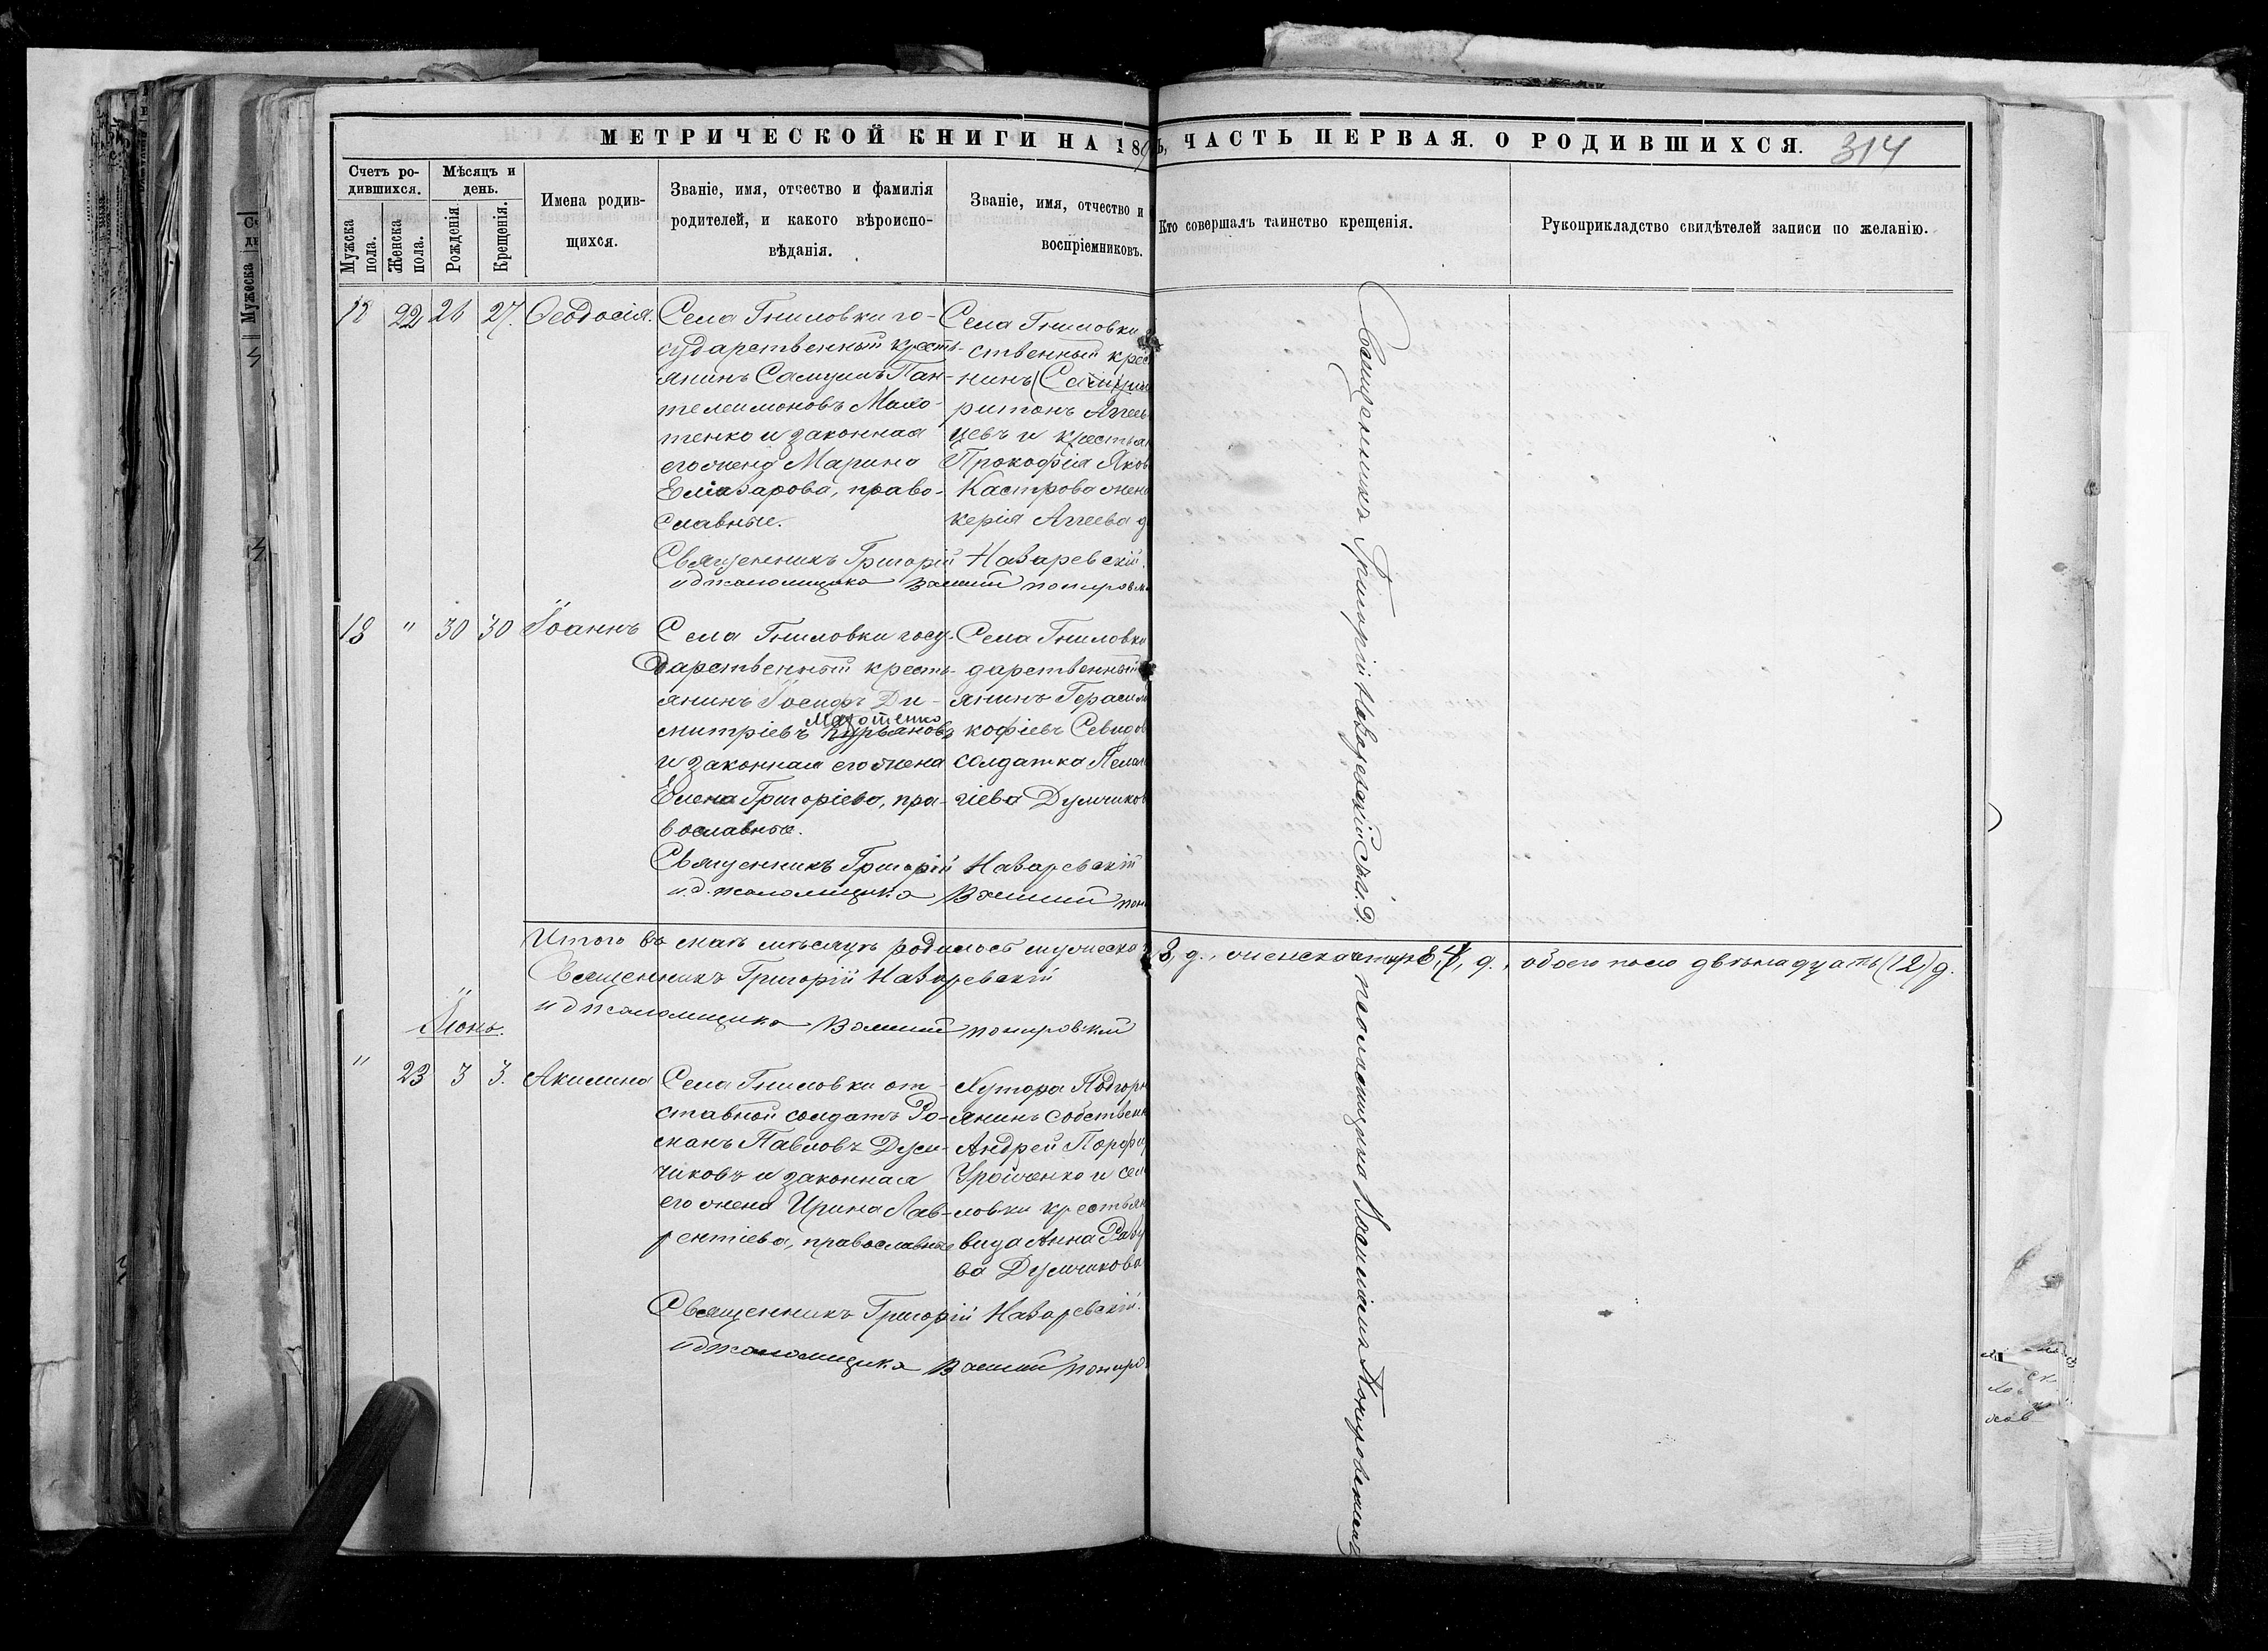 МЕТРИЧЕСКОЙ КНИГИ НА 18 ЧАСТЬ ПЕРВАЯ. О РОДИВШИХСЯ. 314
Счетъ ро-
дившихся.
Мужска
пола.
Женска
пола.
Мѣсяцъ и
день.
Рожденія
Крещенія.
Имена родив-
щихся.
Званіе, имя, отчество и фамилія
родителей, и какого вѣроиспо-
вѣданія.
Званіе, имя, отчество и
воспріемниковъ.
Кто совершалъ таинство крещенія.
Рукоприкладство свидѣтелей записи по желанію.
22 26 27. Ѳеодосія.
Села Гниловки го-
сударственный кресть-
янинъ Самуилъ Пан-
телеимоновъ Махо-
тенко и законная
его жена Марина
Елиазарова, право-
славные.
Села Гниловки
ственный крес
нинъ
ритонъ Аггеев
цевъ и крестьян
Прокофія Яков
Кастрова жена
керія Аггеева д
Священникъ Григорій Назаревскій.
и д псаломщика
18 " 30 30 Іоаннъ
Села Гниловки госу-
дарственный кресть-
янинъ Іосифъ Ди-
митріевъ Махотенко
и законная его жена
Елена Григоріева, пра-
вославные.
Села Гниловки
дарственный
янинъ Герасим
кофіевъ Севидов
солдатка Пелаг
гіева Думчиков
Священникъ Григорій Назаревскій
и. д. псаломщика
Итого въ маѣ мѣсяцѣ родилось мужеска 8, д., женска 4, д., обоего пола двѣнадцать (12) д.
Священникъ Григорій Назаревскій
и д псаломщика
Іюнь.
" 23 3 3. Акилина
Села Гниловки от-
ставной солдатъ Ро-
манъ Павловъ Дум-
чиковъ и законная
его жена Ирина Лав-
рентіева, православные
Хутора Подгорн
янинъ собственн
Андрей Порфир
и сел
ловки крестьян
вица Анна
ва Думчикова
Священникъ Григорій Назаревскій.
и д псаломщика
Священникъ Григорій Назаревскій съ и. д. псаломщика Василіемъ Понировскимъ